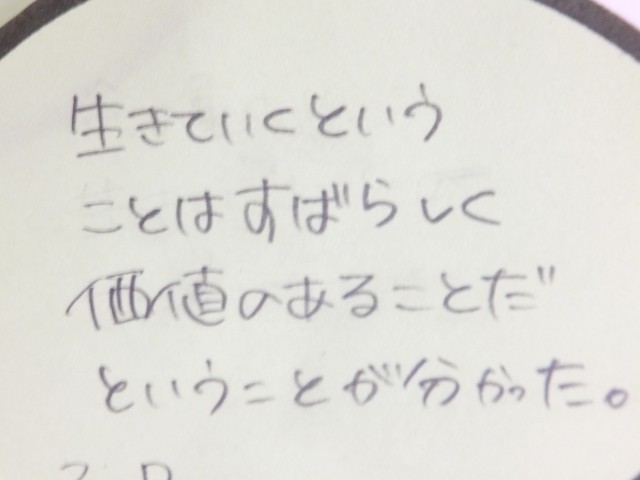 生きていくという
ことはすばらしく
価値のあることだ
ということが分かった。